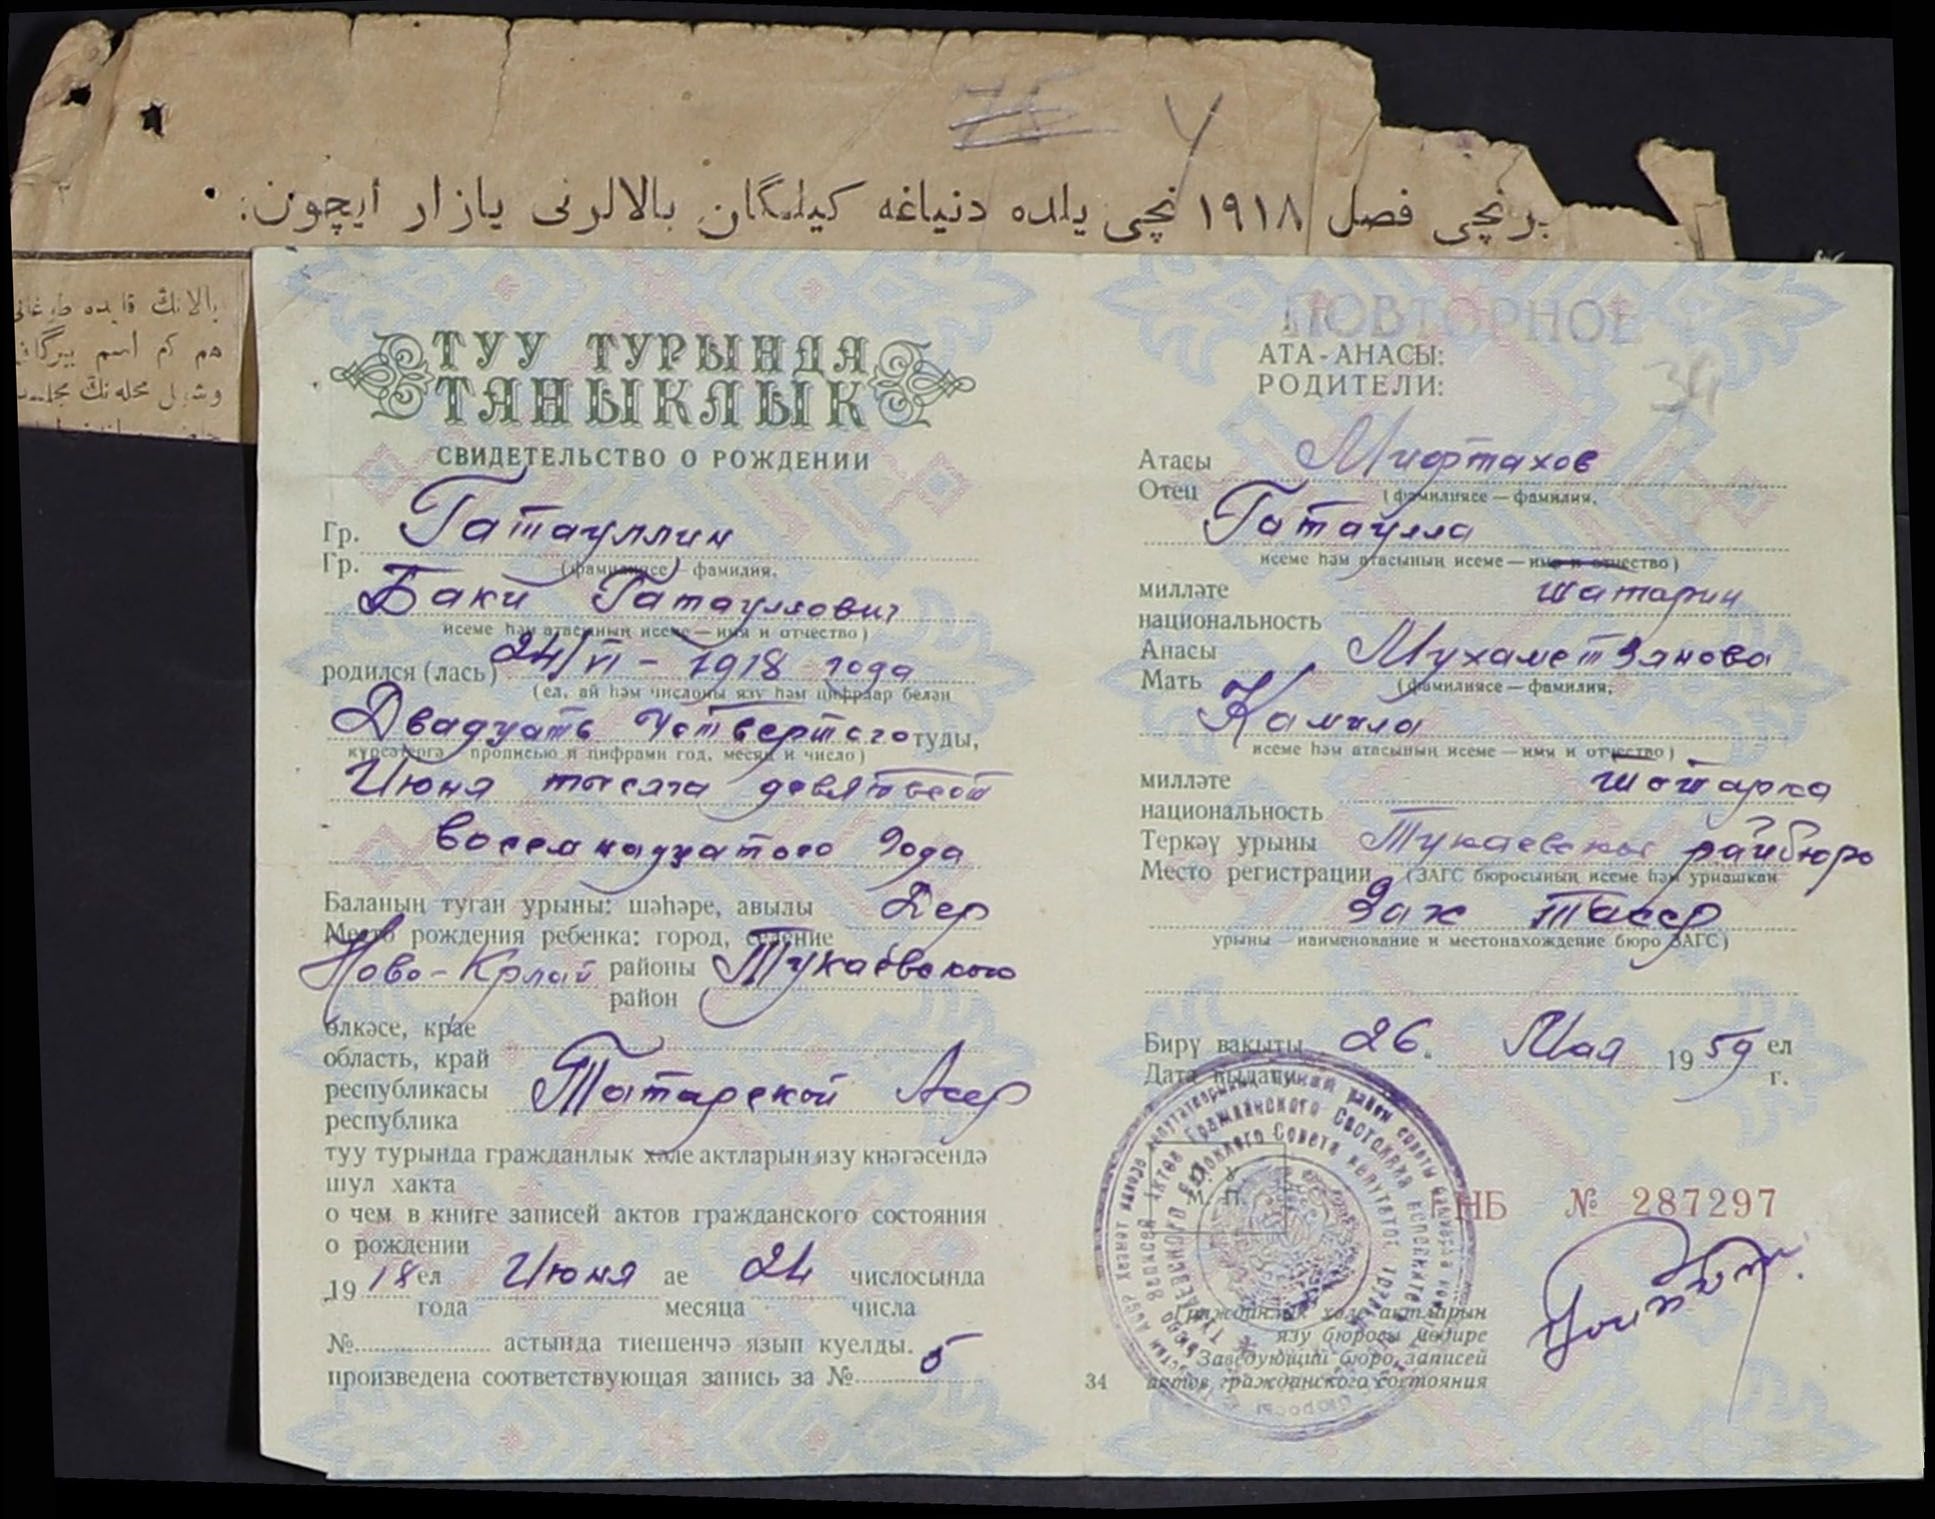 برنچی فصل ١٩١٨ نچی یلده دنیاغه کیلگان بالالرنی یازار ایچون:
بالانڭ قایده
هم کم اسم بیرگان
محله نڭ
ТУУ ТУРЫНДА
ТАНЫКЛЫК
СВИДЕТЕЛЬСТВО О РОЖДЕНИИ
Гр. Гатауллин
Гр. (фамилиясе) фамилия,
Баки Гатауллович
исеме һәм атасының исеме — имя и отчество)
родился (лась) 24/VI - 1918 года
(ел, ай һәм числоны язу һәм цифрлар белән
Двадцать Четвертого туды,
күрсәтергә прописью и цифрами год, месяц и число)
Июня тысяча девятьсот
восемнадцатого года
Баланың туган урыны: шәһәре, авылы Дер
Место рождения ребенка: город, селение
Ново-Крлай районы Тукаевского
район
өлкәсе, крае
область, край
республикасы Татарской Асср
республика
туу турында гражданлык хәле актларын язу кнәгәсендә
шул хакта
о чем в книге записей актов гражданского состояния
о рождении
1918 ел Июня ае 24 числосында
года месяца числа
№ астында тиешенчә язып куелды.
произведена соответствующая запись за № 5
ПОВТОРНОЕ
АТА-АНАСЫ:
РОДИТЕЛИ:
39
Атасы Мифтахов
Отец (фамилиясе — фамилия,
Гатаулла
исеме һәм атасының исеме — имя и отчество)
милләте татарин
национальность
Анасы Мухаметзянова
Мать (фамилиясе — фамилия,
Камила
исеме һәм атасының исеме — имя и отчество)
милләте татарка
национальность
Теркәү урыны Тукаевское райбюро
Место регистрации (ЗАГС бюросының исеме һәм урнашкан
Загс Тасср
урыны — наименование и местонахождение бюро ЗАГС)
Бирү вакыты 26. Мая 1959 ел
Дата выдачи г.
М. П.
НБ № 287297
Гражданлык хәле актларын
язу бюросы мөдире
Заведующий бюро записей
34 актов гражданского состояния